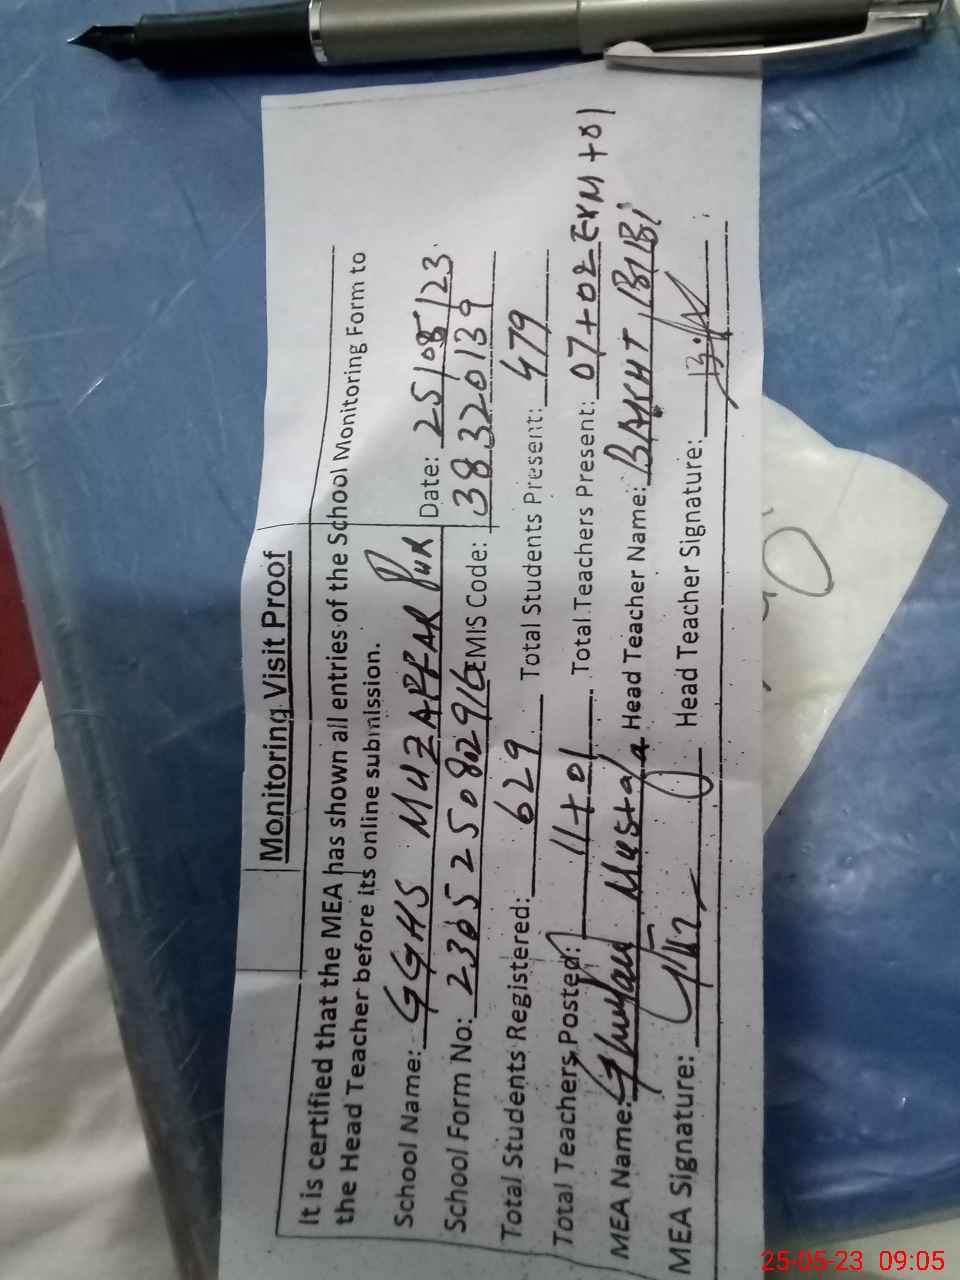 Monitoring Visit Proof
It is certified that the MEA has shown all entries of the School Monitoring Form to
the Head Teacher before its online submission.
School Name: GGHS MUZAFFAR PUR Date: 25/05/23
School Form No: 230525082916 EMIS Code: 38320139
Total Students Registered: 629 Total Students Present: 479
Total Teachers Posted: 11+01 Total Teachers Present: 07+02 EXM+01
MEA Name: Ghulam Mustafa Head Teacher Name: BAKHT BIBI
MEA Signature: Head Teacher Signature:
25-05-23 09:05